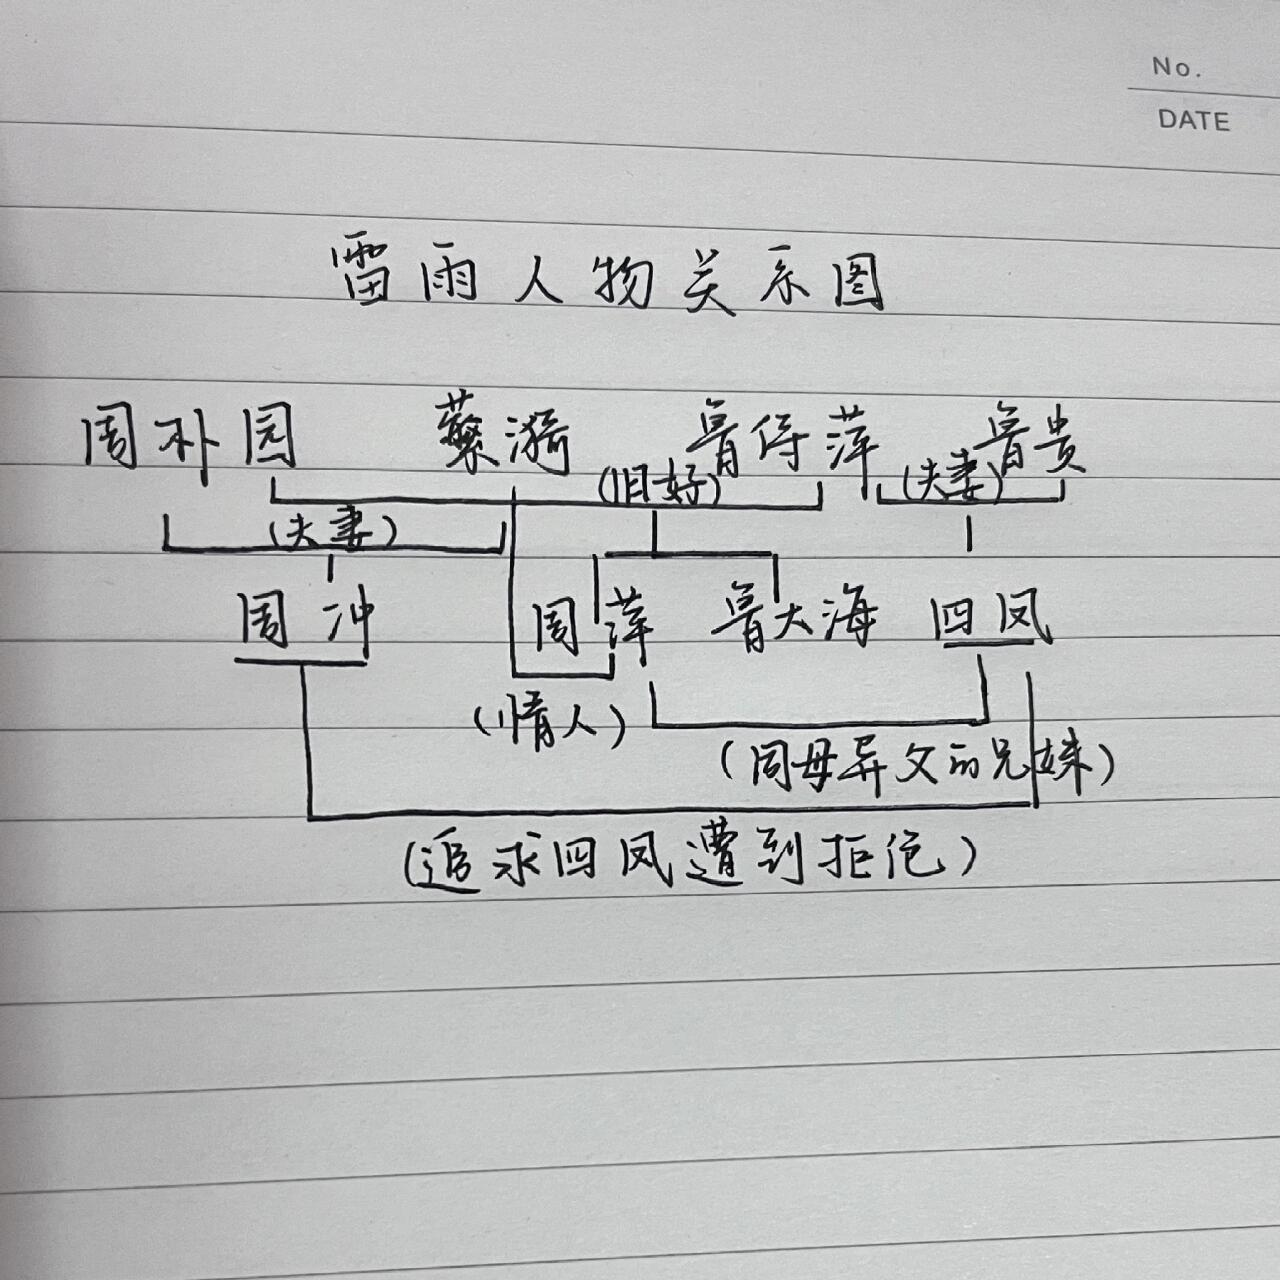 No.
DATE
雷雨人物关系图
周朴园 蘩漪 鲁侍萍 鲁贵
(旧好) (夫妻)
(夫妻)
周冲 周萍 鲁大海 四凤
(情人)
(同母异父的兄妹)
(追求四凤遭到拒绝)